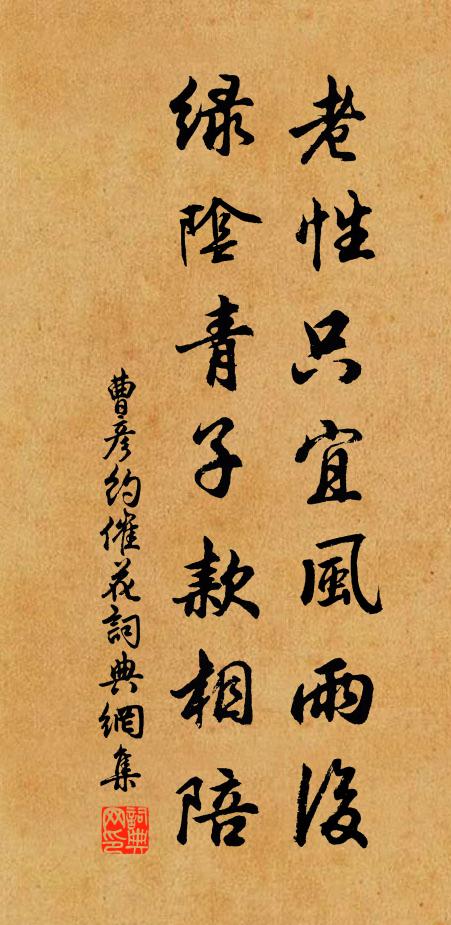 老性只宜風雨後
綠陰青子款相陪
曹彦約催花詞典網集
詞典網印